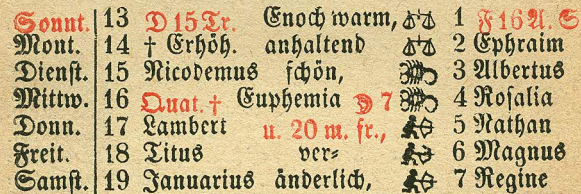 Sonnt. 13 D 15 Tr. Enoch warm, 1 F 16 A. S
Mont. 14 † Erhöh. anhaltend 2 Ephraim
Dienst. 15 Nicodemus schön, 3 Albertus
Mittw. 16 Quat. † Euphemia D 7 4 Rosalia
Donn. 17 Lambert u. 20 m. fr., 5 Nathan
Freit. 18 Titus ver= 6 Magnus
Samst. 19 Januarius änderlich, 7 Regine